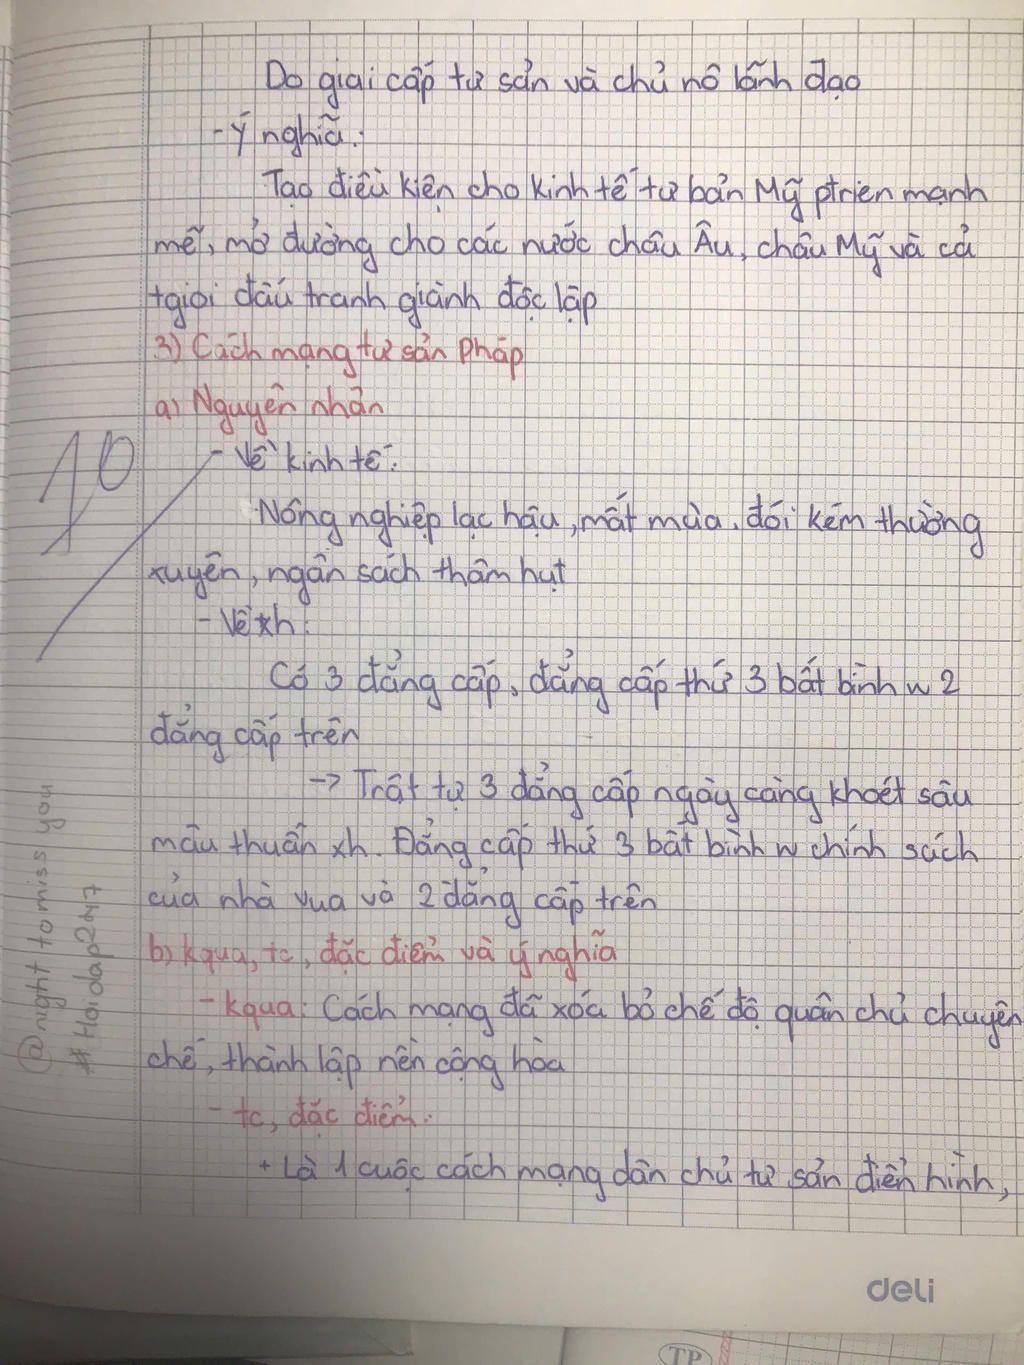 Do giai cấp tư sản và chủ nô lãnh đạo
- Ý nghĩa:
Tạo điều kiện cho kinh tế tư bản Mỹ ptrien mạnh
mẽ, mở đường cho các nước châu Âu, châu Mỹ và cả
tgioi đấu tranh giành độc lập
3) Cách mạng tư sản Pháp
a) Nguyên nhân
- Về kinh tế:
Nông nghiệp lạc hậu, mất mùa, đói kém thường
xuyên, ngân sách thâm hụt
- Về xh:
Có 3 đẳng cấp, đẳng cấp thứ 3 bất bình w 2
đẳng cấp trên
-> Trật tự 3 đẳng cấp ngày càng khoét sâu
mâu thuẫn xh. Đẳng cấp thứ 3 bất bình w chính sách
của nhà vua và 2 đẳng cấp trên
b) kqua, tc, đặc điểm và ý nghĩa
- kqua: Cách mạng đã xóa bỏ chế độ quân chủ chuyên
chế, thành lập nền cộng hòa
- tc, đặc điểm:
+ Là 1 cuộc cách mạng dân chủ tư sản điển hình,
10
@night to miss you
# Hoidap247
deli
TP